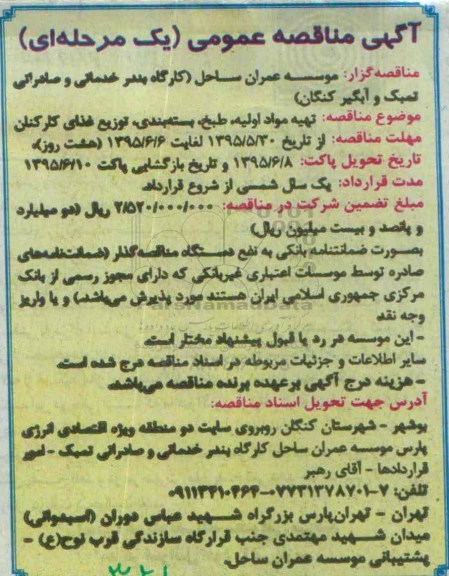 آگهی مناقصه عمومی (یک مرحله‌ای)
مناقصه‌گزار: موسسه عمران ساحل (کارگاه بندر خدماتی و صادراتی
تمبک و آبگیر کنگان)
موضوع مناقصه: تهیه مواد اولیه، طبخ، بسته‌بندی، توزیع غذای کارکنان
مهلت مناقصه: از تاریخ ۱۳۹۵/۵/۳۰ لغایت ۱۳۹۵/۶/۶ (هشت روز)،
تاریخ تحویل پاکت: ۱۳۹۵/۶/۸ و تاریخ بازگشایی پاکت ۱۳۹۵/۶/۱۰
مدت قرارداد: یک سال شمسی از شروع قرارداد.
مبلغ تضمین شرکت در مناقصه: ۲/۵۲۰/۰۰۰/۰۰۰ ریال (دو میلیارد
و پانصد و بیست میلیون ریال)
بصورت ضمانتنامه بانکی به نفع دستگاه مناقصه‌گذار (ضمانت‌نامه‌های
صادره توسط موسسات اعتباری غیربانکی که دارای مجوز رسمی از بانک
مرکزی جمهوری اسلامی ایران هستند مورد پذیرش می‌باشد) و یا واریز
وجه نقد
- این موسسه در رد یا قبول پیشنهاد مختار است.
سایر اطلاعات و جزئیات مربوطه در اسناد مناقصه درج شده است.
- هزینه درج آگهی برعهده برنده مناقصه می‌باشد.
آدرس جهت تحویل اسناد مناقصه:
بوشهر - شهرستان کنگان روبروی سایت دو منطقه ویژه اقتصادی انرژی
پارس موسسه عمران ساحل کارگاه بندر خدماتی و صادراتی تمبک - امور
قراردادها - آقای رهبر
تلفن: ۷-۰۷۷۳۱۳۷۸۷۰۱-۰۹۱۱۳۳۱۰۴۶۴
تهران - تهران‌پارس بزرگراه شهید عباس دوران (اسبدوانی)
میدان شهید مهتمدی جنب قرارگاه سازندگی قرب نوح(ع) -
پشتیبانی موسسه عمران ساحل.